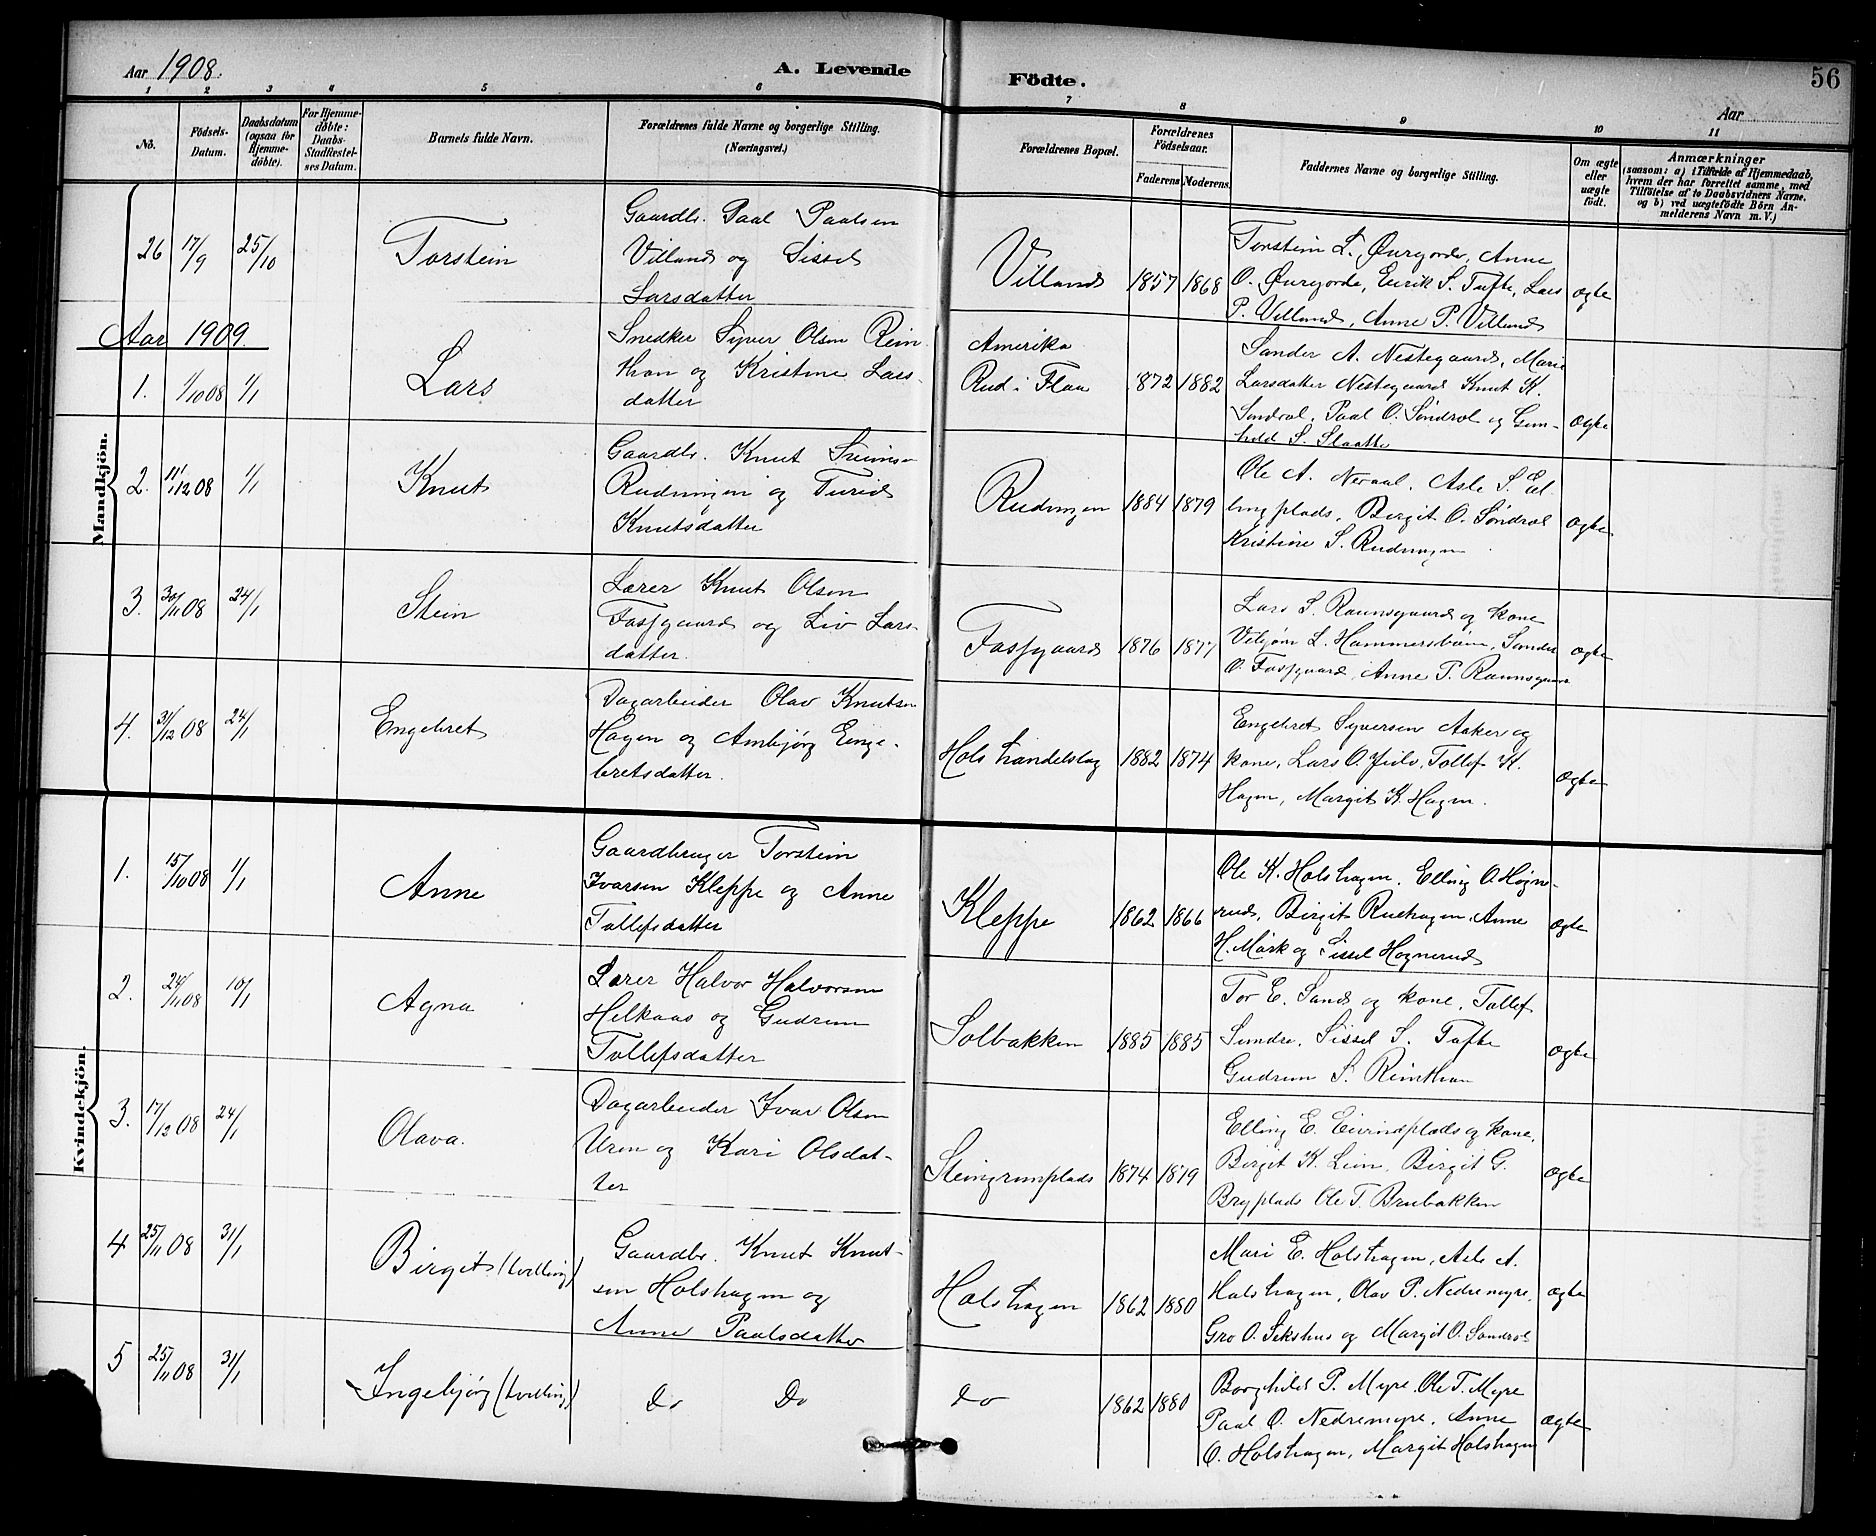 Aar 1908.
A. Levende
Födte.
56
Aar
1 2 3 4 5 6 7 8 9 10 11
No.
Födsels-
Datum.
Daabsdatum
(ogsaa for
Hjemme-
döbte).
For Hjemme-
döbte:
Daabs-
Stadfæstel-
ses Datum.
Barnets fulde Navn.
Forældrenes fulde Navne og borgerlige Stilling.
(Næringsvei.)
Forældrenes Bopæl.
Forældrenes
Födselsaar.
Faderens Moderens
Faddernes Navne og borgerlige Stilling.
Om ægte
eller
uægte
födt.
Anmærkninger
(saasom: a) i Tilfælde af Hjemmedaab,
hvem der har forrettet samme, med
Tilföielse af to Daabsvidners Navne.
og b) ved uægtefödte Börn An-
melderens Navn m. V.)
Mandkjön.
26 17/9 25/10 Torstein
Gaardbr. Paal Paalsen
Villand og Sissel
Larsdatter
Villand 1857 1868
Torstein L. Øvregorde, Anne
O. Øvregorde, Eirik S. Tufte, Lars
P. Villand, Anne P. Villand
ægte
Aar 1909.
1. 1/10 08 1/1 Lars
Snedker Syver Olsen Rein
ton og Kristine Lars-
datter
Amerika
Rud i Flaa 1872 1882
Sander A. Nestegaard, Marie
Larsdatter Nestegaard Knut K.
Sondrol, Paal O. Søndrol og Gun-
hild S. Slaatte
ægte
2. 11/12 08 1/1 Knut
Gaardbr. Knut
Rudningen og Turid
Knutsdatter
Rudningen 1884 1879
Ole A. Neraal, Asle S. Eel
lingplads, Birgit O. Søndrol
Kristine S. Rudningen
ægte
3. 30/11 08 24/1 Stein
Lærer Knut Olsen
Fossgaard og Liv Lars-
datter.
Fossgaard 1876 1877
Lars S. Raunsgaard og kone
Vebjørn L. Hammersbøen, Sander
O. Fossgaard, Anne T. Raunsgaard
ægte
4. 31/12 08 24/1 Engebret
Dagarbeider Olav Knutsen
Hagen og Ambjørg Enge-
bretsdatter.
Hols handelslag 1882 1874
Engebret Syversen Aaker og
kone, Lars O. , Tollef K.
Hagen, Margit K. Hagen.
ægte
Kvindekjön.
1. 15/10 08 1/1 Anne
Gaardbruger Torstein
Ivarsen Kleppe og Anne
Tollefsdatter
Kleppe 1862 1866
Ole K. Holshagen, Elling O. Høgne-
rud, Birgit Ruehagen, Anne
H. Mørk og Sissel Hognerud
ægte
2. 24/11 08 10/1 Agna
Lærer Halvor Halvorsen
Helkaas og Gudrun
Tollefsdatter
Solbakken 1885 1885
Tor E. Sand og kone, Tollef
Sundre, Sissel S. Tufte
Gudrun S. Reinton
ægte
3. 17/12 08 24/1 Olava.
Dagarbeider Ivar Olsen
Uren og Kari Olsdat-
ter
Steingrimplads 1874 1879
Elling E. Eivindplads og kone,
Birgit K. Lien, Birgit G.
Bryplads Ole T. Brubakken
ægte
4 25/11 08 31/1 Birgit (tvilling)
Gaardbr. Knut Knut-
sen Holshagen og
Anne Paalsdatter
Holshagen 1862 1880
Mari E. Holshagen, Asle A.
Holshagen, Olav P. Nedremyre,
Gro O. Sekshus og Margit O. Sondrol
ægte
5 25/11 08 31/1 Ingebjørg (tvilling)
Do Do
do 1862 1880
Borghild P. Myre, Ole T. Myre
Paal O. Nedremyre, Anne
O. Holshagen, Margit Holshagen
ægte